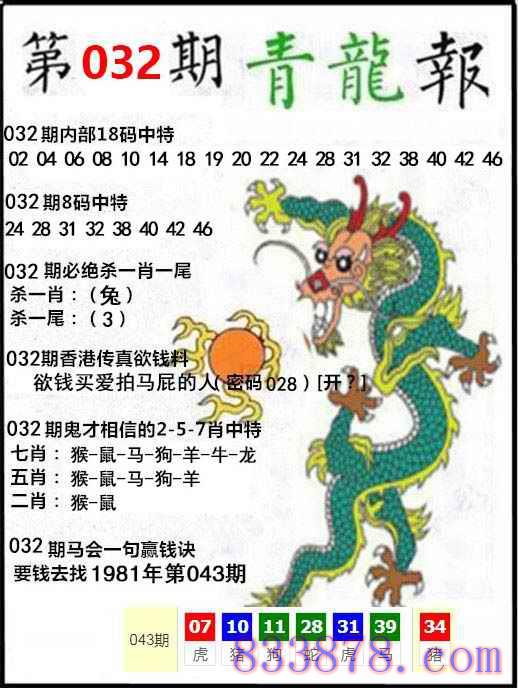 第032期青龍報
032期内部18码中特
02 04 06 08 10 14 18 19 20 22 24 28 31 32 38 40 42 46
032期8码中特
24 28 31 32 38 40 42 46
032期必绝杀一肖一尾
杀一肖：（兔）
杀一尾：（3）
032期香港传真欲钱料
欲钱买爱拍马屁的人(密码028)[开？]
032期鬼才相信的2-5-7肖中特
七肖：猴-鼠-马-狗-羊-牛-龙
五肖：猴-鼠-马-狗-羊
二肖：猴-鼠
032期马会一句赢钱诀
要钱去找1981年第043期
043期 07 10 11 28 31 39 34
虎 猪 狗 蛇 虎 马 猪
833878.com